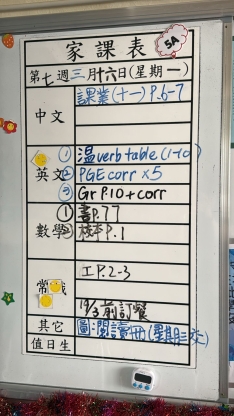 家課表
5A
第七週三月十六日(星期一)
中文 課業(十一)P.6-7
英文 ① 溫verb table (1-10)
② PGE corr x5
③ Gr P.10 + corr
數學 ① 書P.77
② P.1
常識 工P.2-3
19/3前訂餐
其它 圖:閱讀冊(星期三交)
值日生